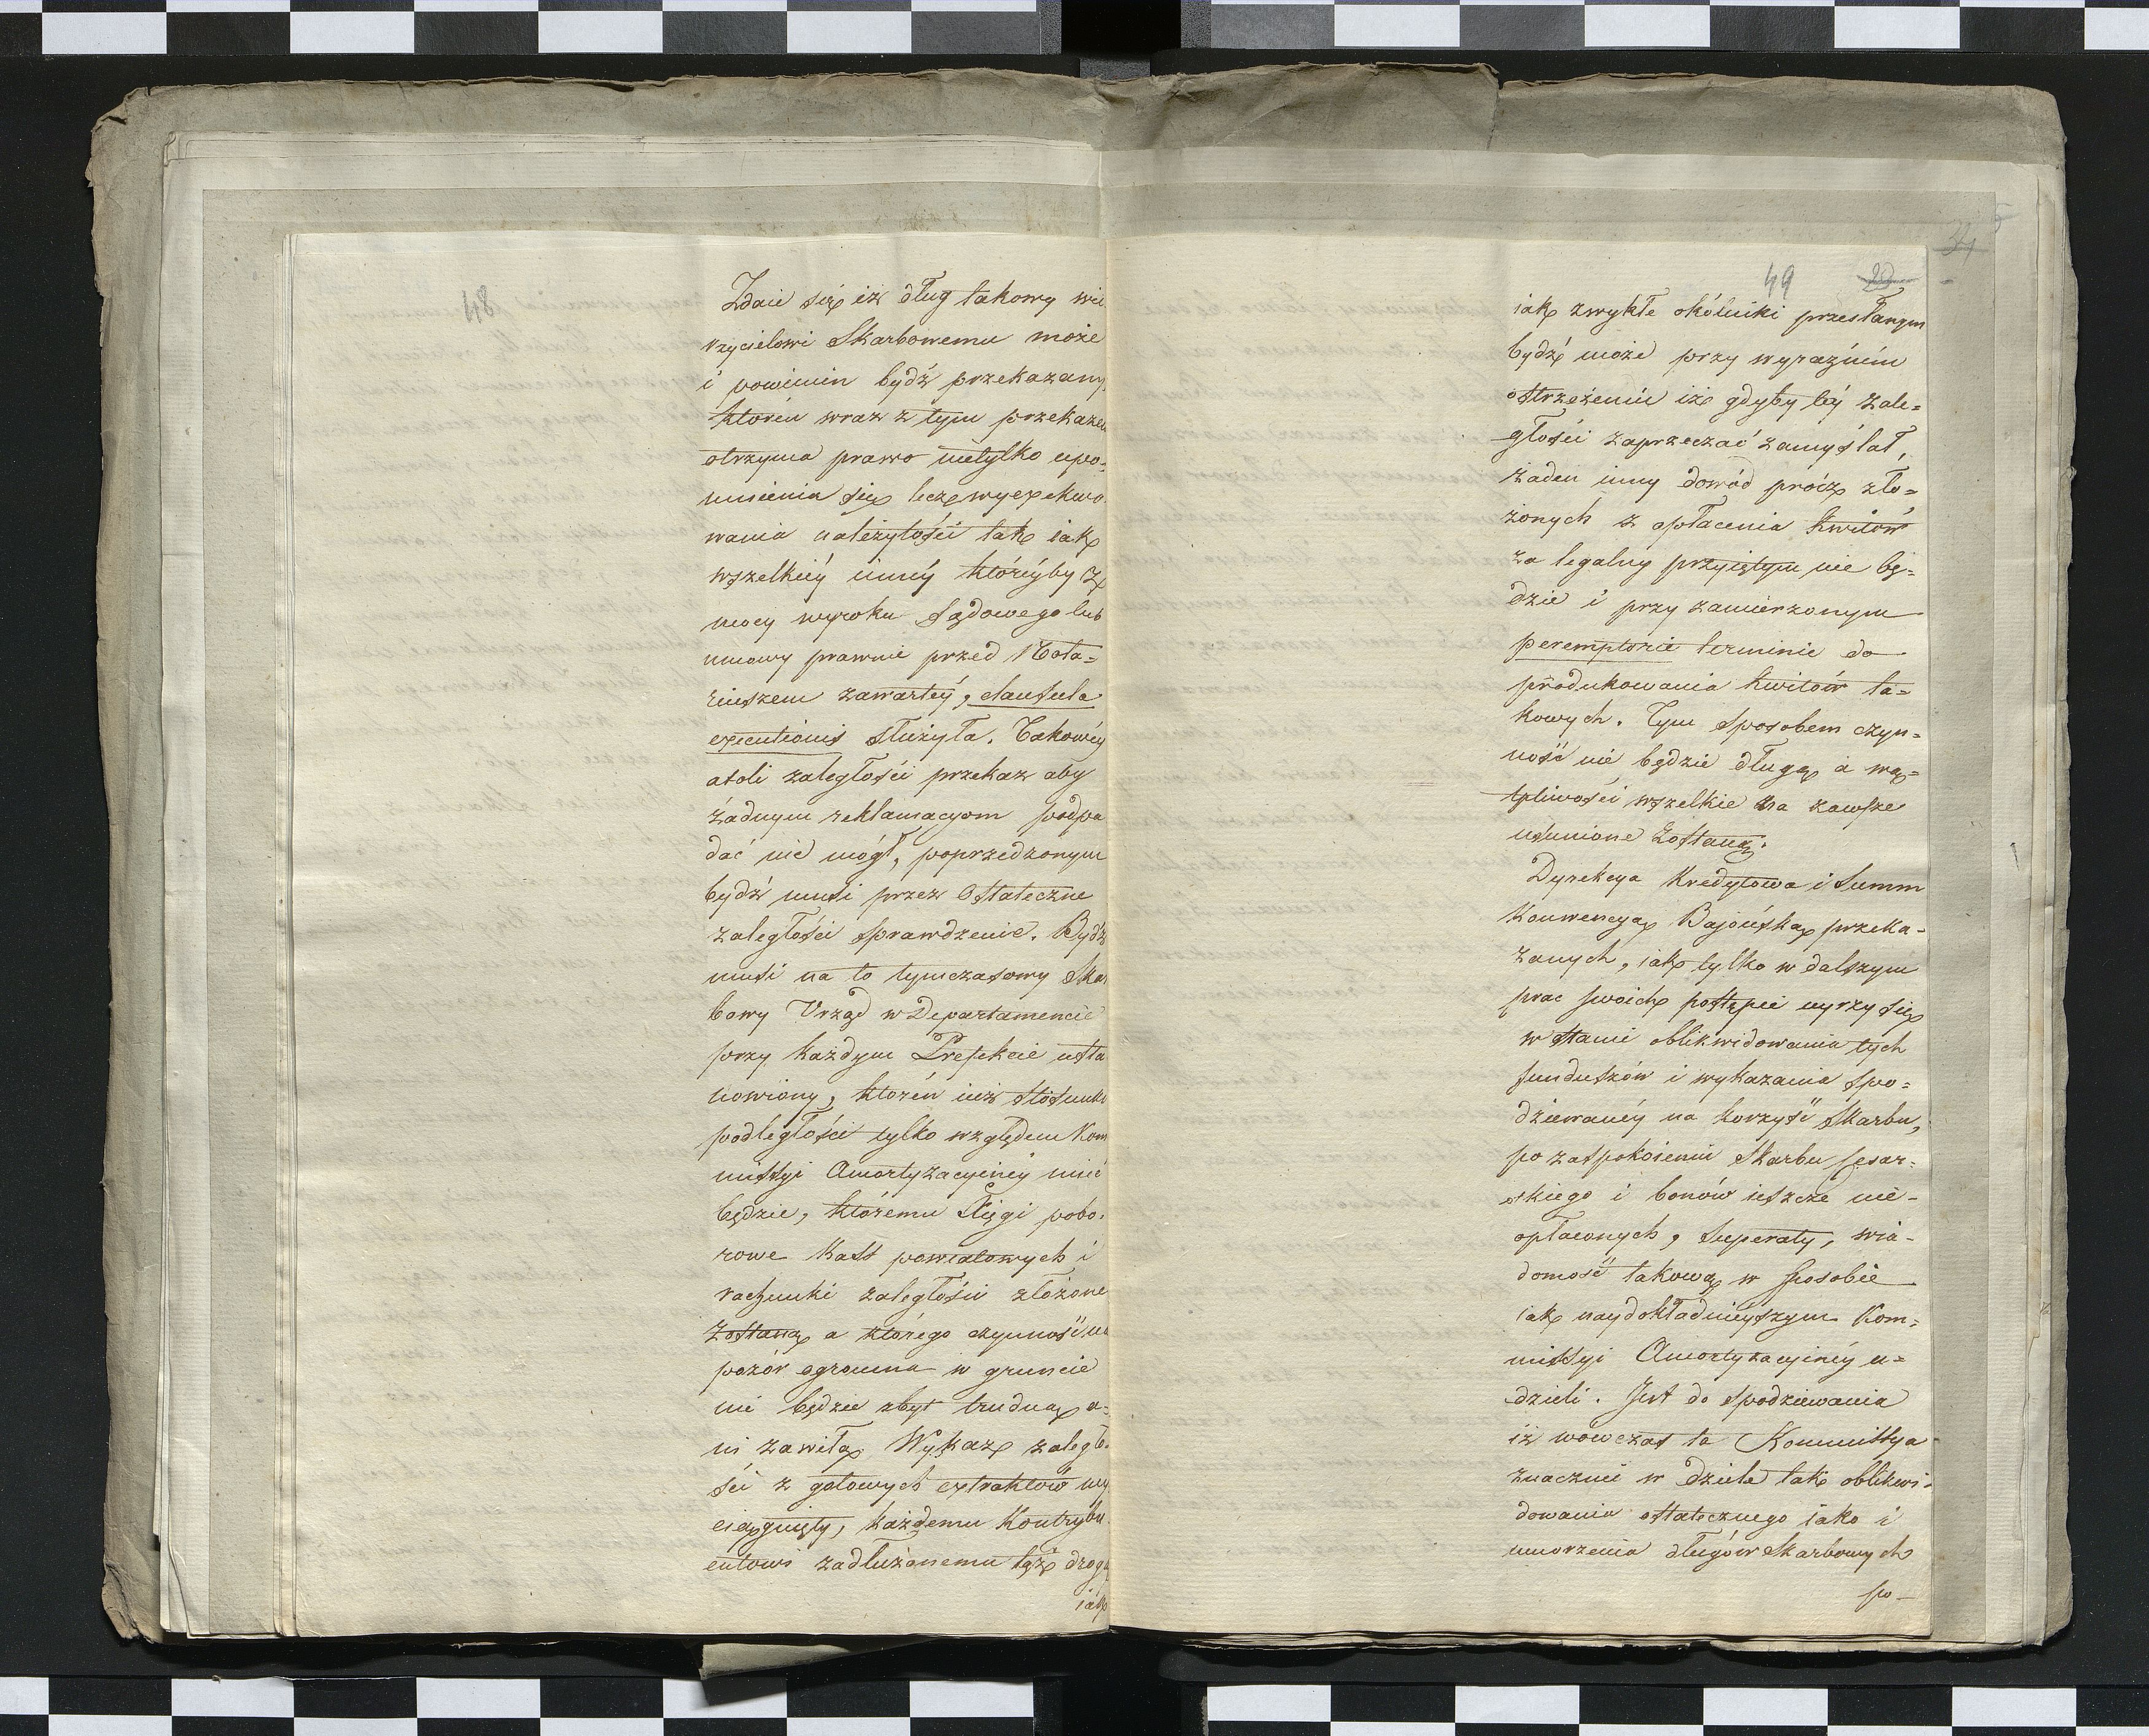 48
Zdaie się iż dług takowy wie
rzycielowi Skarbowemu może
i powinien bydź przekazany
któren wraz z tym przekazem
otrzyma prawo nietylko upo=
mnienia się lecz wyexekwo
wania należytości tak iak
wszelkiéy innéy któréyby z
mocy wyroku Sądowego lub
umowy prawnie przed Nota=
riuszem zawartéy, clausula
executionis służyła. Takowéy
atoli zaległości przekaz aby
żadnym reklamacyom podpa
dać nie mógł, poprzedzonym
bydź musi przez Ostateczne
zaległości sprawdzenie. Bydź
musi na to tymczasowy Skar
bowy Urząd w Departamencie
przy każdym Prefekcie usta
nowiony, któren iuż stosunki
podległości tylko względem Kom
missyi Amortyzacyinéy mieć
będzie, któremu Xięgi pobo=
rowe Kass powiatowych i
rachunki zaległości złożone
Zostaną a którego czynność na
pozór ogromna w gruncie
nie będzie zbyt trudną a=
ni zawiłą. Wykaz zaległo=
ści z gotowych extraktów wy
ciągnięty, każdemu Kontrybu
entowi zadłużonemu tąż drogą
iak
49
iak zwykłe okólniki przesłanym
bydź może przy wyraźném
ostrzeżeniu iż gdyby téy zale=
głości zaprzeczać zamyślał,
żaden inny dowód prócz zło=
żonych z opłacenia kwitów
za legalny przyiętym nie bę=
dzie i przy zamierzonym
peremptorie terminie do
produkowania kwitów ta=
kowych. Tym sposobem czyn=
ność nie będzie długą a wą=
tpliwości wszelkie na zawsze
usunione Zostaną.
Dyrekcya Kredytowa i Summ
Konwencyą Bajońską przeka=
zanych, iak tylko w dalszym
prac swoich postępie uyrzy się
w stanie oblikwidowania tych
funduszów i wykazania spo=
dziewanéy na korzyść Skarbu,
po zaspokoieniu Skarbu Cesar=
skiego i bonów ieszcze nie=
opłaconych, Superaty, wia=
domość takową w sposobie
iak naydokładnieyszym Kom=
missyi Amortyzacyinéy u=
dzieli. Jest do spodziewania
iż wówczas ta Kommissya
znacznie w dziele tak oblikwi=
dowania ostatecznego iako i
umorzenia długów Skarbowych
po-